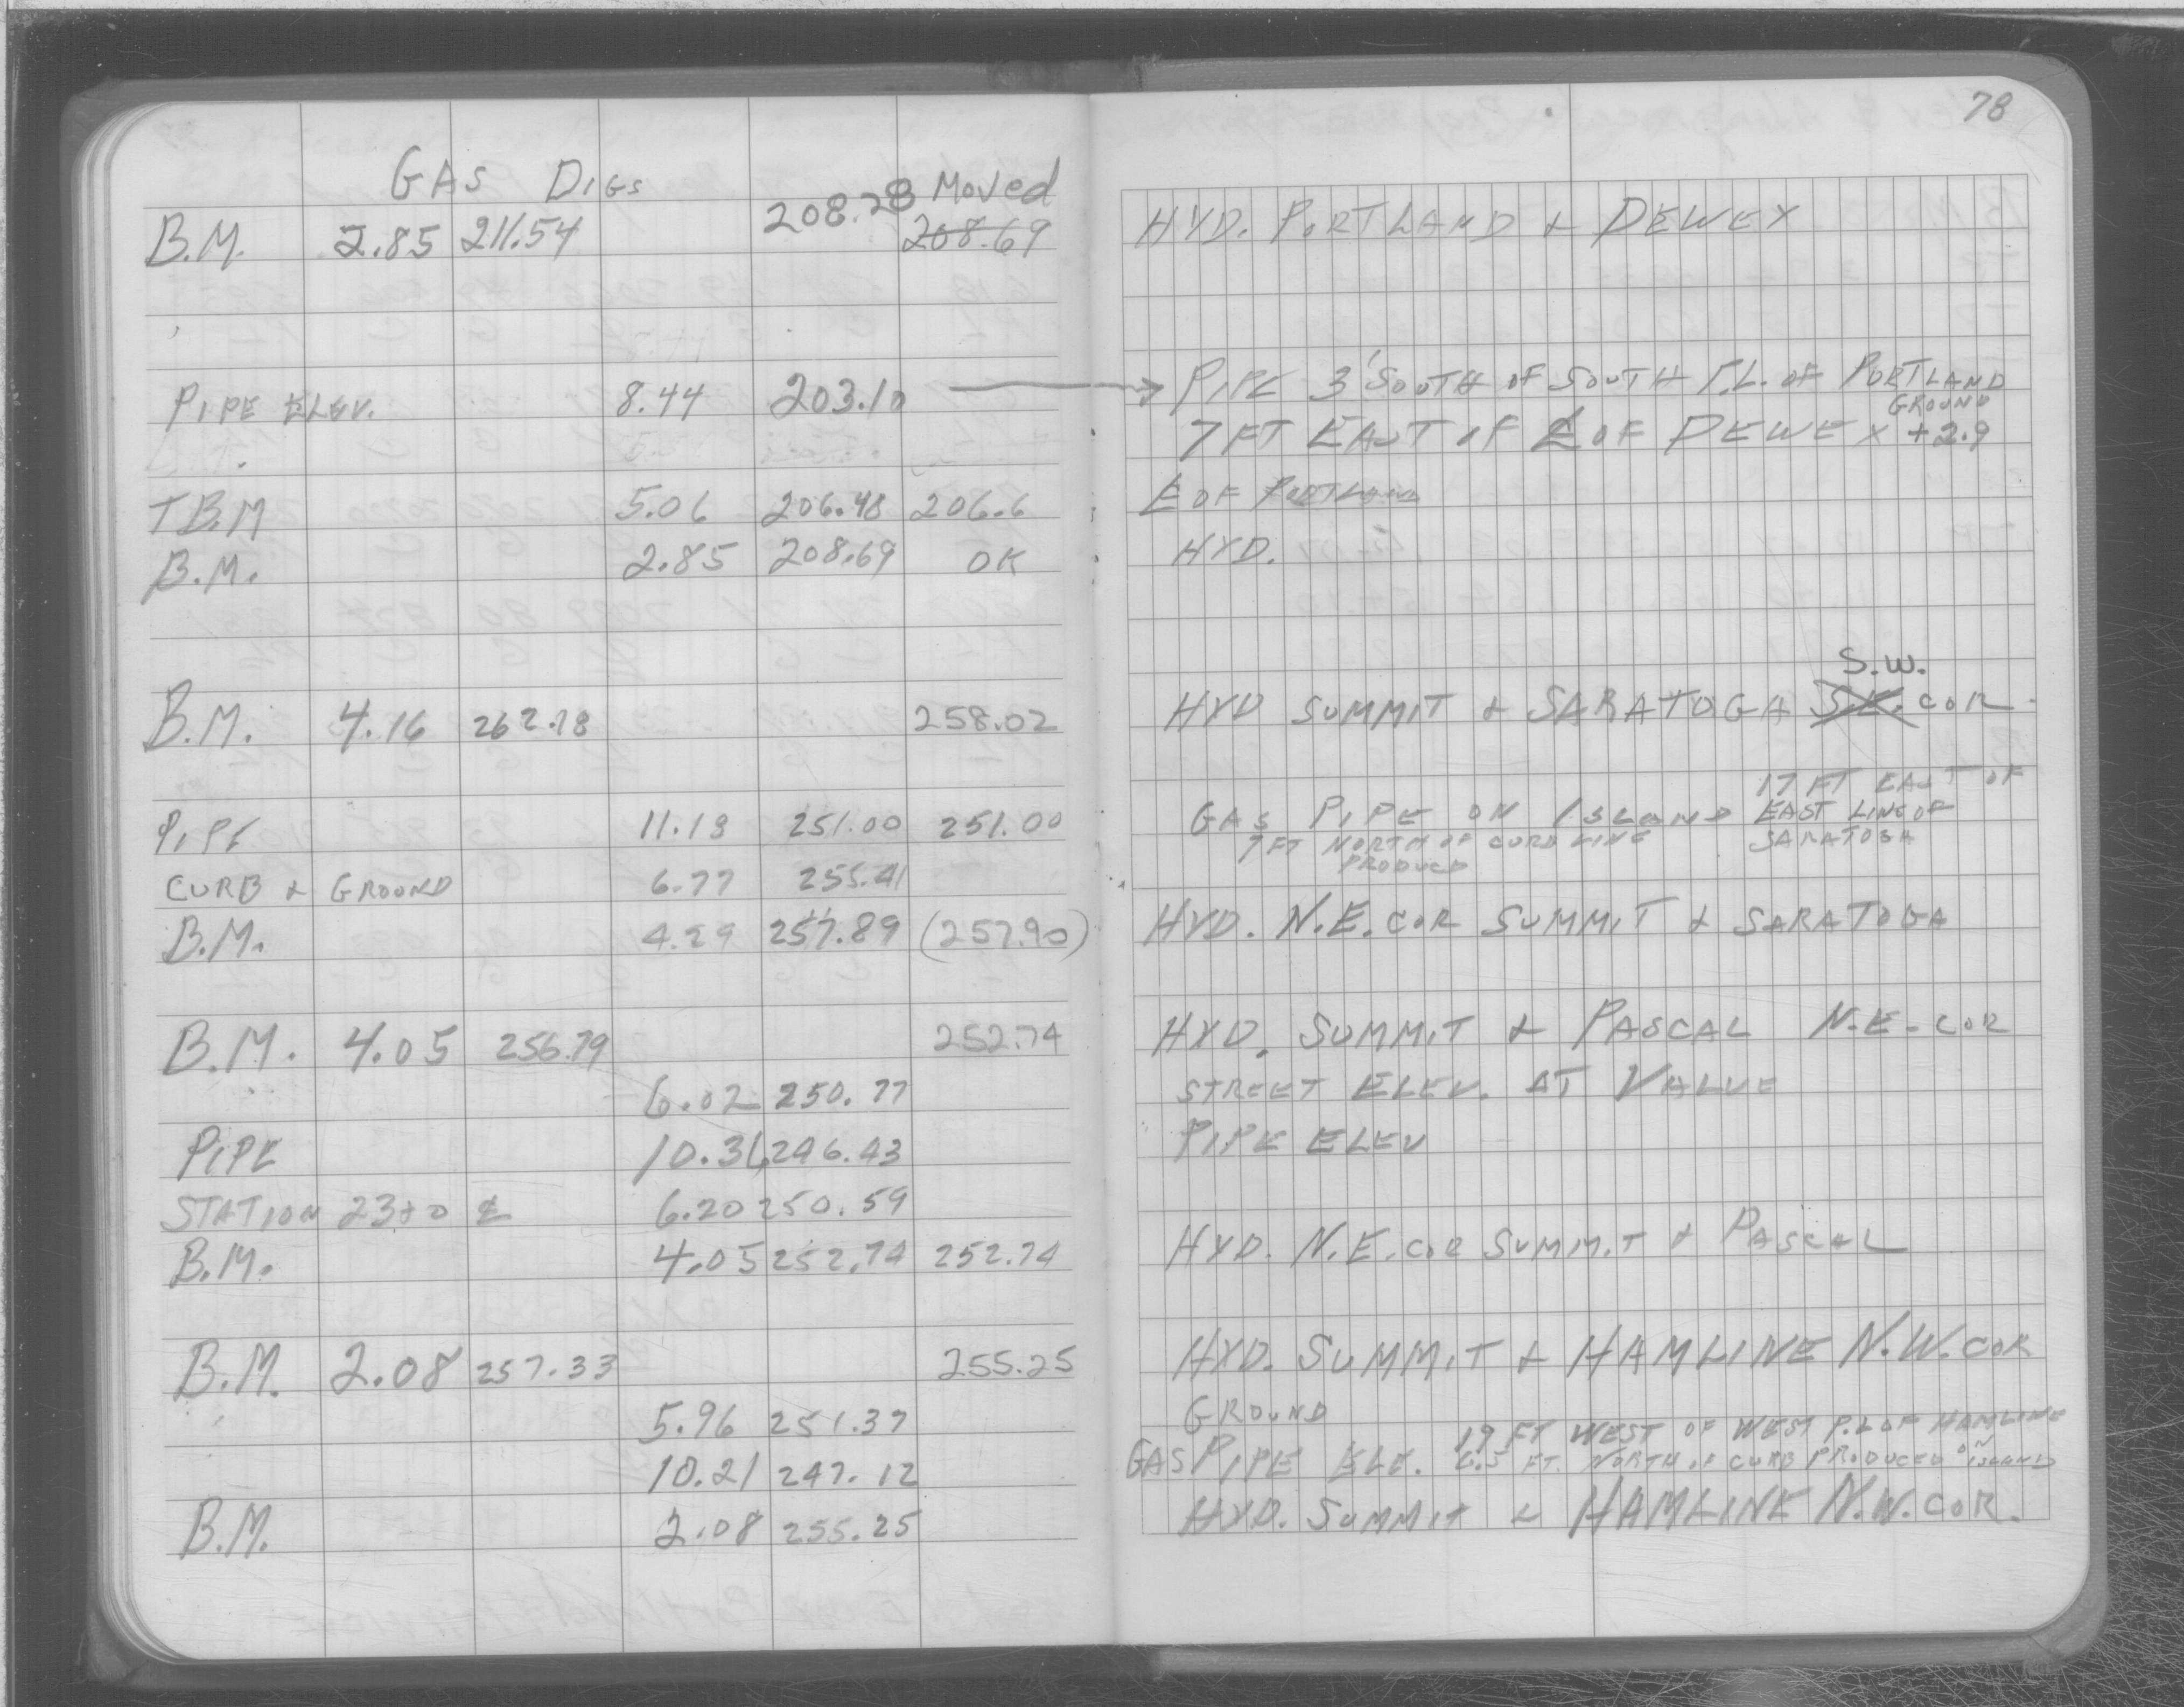 78
GAS DIGS
208.28 Moved
B.M. 2.85 211.54 208.69 HYD. PORTLAND & DEWEY
PIPE ELEV. 8.44 203.10 → PIPE 3' SOUTH OF SOUTH P.L. OF PORTLAND
GROUND
7 FT EAST OF ℄ OF DEWEY +2.9
TBM 5.06 206.48 206.6 ℄ OF PORTLAND
B.M. 2.85 208.69 OK HYD.
S.W.
B.M. 4.16 262.18 258.02 HYD SUMMIT & SARATOGA S.E. COR.
17 FT EAST OF
PIPE 11.18 251.00 251.00 GAS PIPE ON ISLAND EAST LINE OF
7 FT NORTH OF CURB LINE SARATOGA
PRODUCED
CURB & GROUND 6.77 255.41
B.M. 4.29 257.89 (257.90) HYD. N.E. COR SUMMIT & SARATOGA
B.M. 4.05 256.79 252.74 HYD. SUMMIT & PASCAL N.E. COR
6.02 250.77 STREET ELEV. AT VALVE
PIPE 10.36 246.43 PIPE ELEV
STATION 23+0 ℄ 6.20 250.59
B.M. 4.05 252.74 252.74 HYD. N.E. COR SUMMIT & PASCAL
B.M. 2.08 257.33 255.25 HYD. SUMMIT & HAMLINE N.W. COR
5.96 251.37 GROUND
19 FT WEST OF WEST P.L OF HAMLINE
10.21 247.12 GAS PIPE ELE. 6.5 FT. NORTH OF CURB PRODUCED ON ISLAND
B.M. 2.08 255.25 HYD. SUMMIT & HAMLINE N.W. COR.